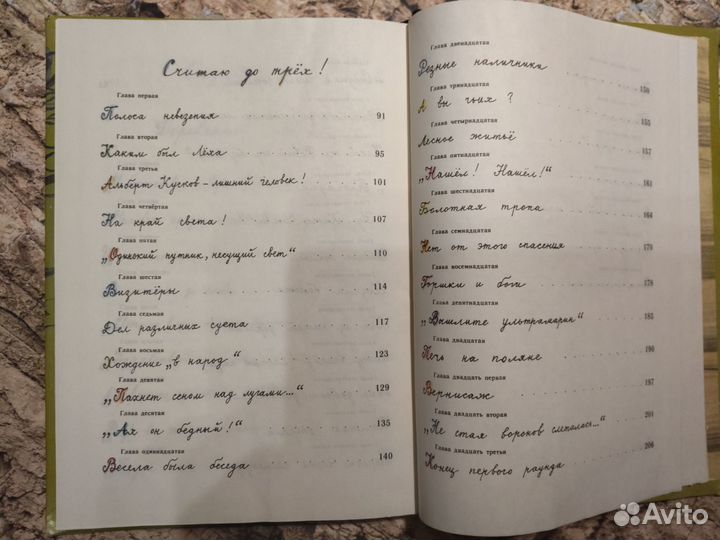 Считаю до трёх!
Глава первая
Полоса невезения 91
Глава вторая
Каким был Лёха 95
Глава третья
Альберт Кусков – лишний человек! 101
Глава четвёртая
На край света! 107
Глава пятая
„Одинокий путник, несущий свет“ 110
Глава шестая
Визитёры 114
Глава седьмая
Дел различных суета 117
Глава восьмая
Хождение „в народ“ 123
Глава девятая
„Пахнет сеном над лугами...“ 129
Глава десятая
„Ах он бедный!“ 135
Глава одиннадцатая
Весела была беседа 140
Глава двенадцатая
Резные наличники 150
Глава тринадцатая
А вы чьих? 155
Глава четырнадцатая
Лесное житьё 157
Глава пятнадцатая
„Нашёл! Нашёл!“ 161
Глава шестнадцатая
Болотная тропа 164
Глава семнадцатая
Нет от этого спасения 170
Глава восемнадцатая
Горшки и боги 178
Глава девятнадцатая
„Вышлите ультрамарин“ 185
Глава двадцатая
Печь на поляне 190
Глава двадцать первая
Вернисаж 197
Глава двадцать вторая
„Не стая воронов слеталась...“ 201
Глава двадцать третья
Конец первого раунда 206
Avito